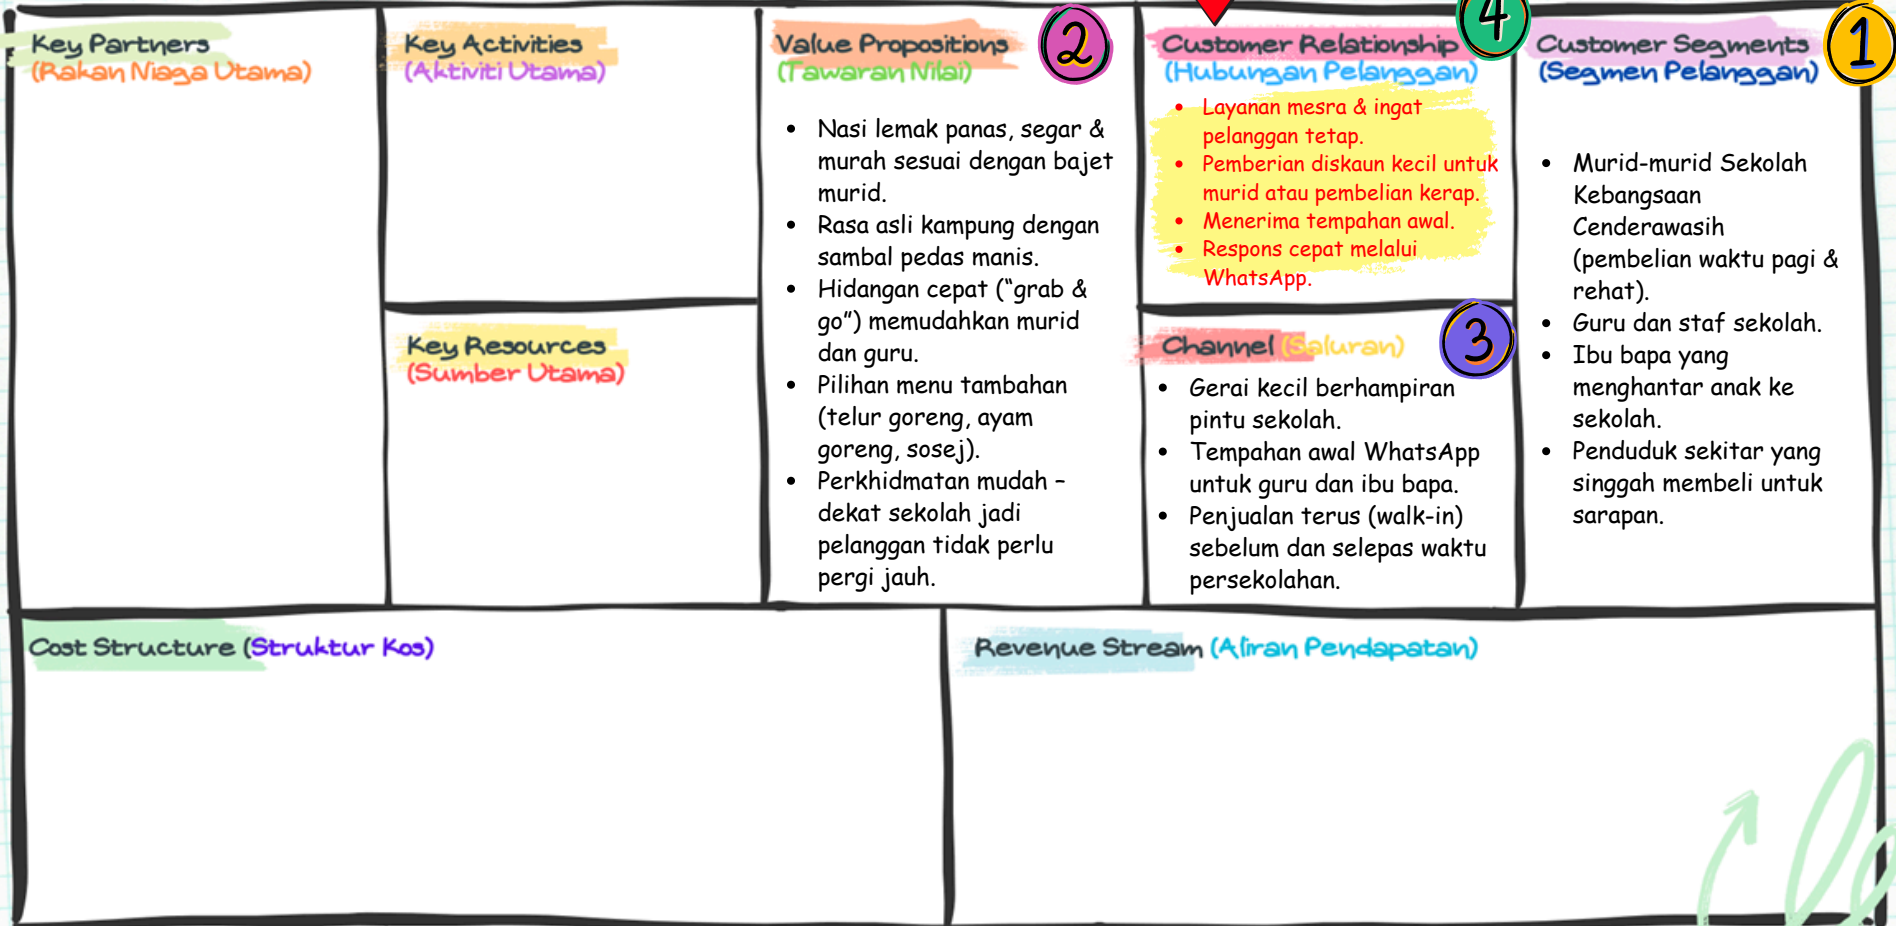 Key Partners
(Rakan Niaga Utama)
Key Activities
(Aktiviti Utama)
Key Resources
(Sumber Utama)
Value Propositions
(Tawaran Nilai)
2
• Nasi lemak panas, segar &
murah sesuai dengan bajet
murid.
• Rasa asli kampung dengan
sambal pedas manis.
• Hidangan cepat (“grab &
go”) memudahkan murid
dan guru.
• Pilihan menu tambahan
(telur goreng, ayam
goreng, sosej).
• Perkhidmatan mudah –
dekat sekolah jadi
pelanggan tidak perlu
pergi jauh.
Customer Relationship
(Hubungan Pelanggan)
4
• Layanan mesra & ingat
pelanggan tetap.
• Pemberian diskaun kecil untuk
murid atau pembelian kerap.
• Menerima tempahan awal.
• Respons cepat melalui
WhatsApp.
Channel (Saluran)
3
• Gerai kecil berhampiran
pintu sekolah.
• Tempahan awal WhatsApp
untuk guru dan ibu bapa.
• Penjualan terus (walk-in)
sebelum dan selepas waktu
persekolahan.
Customer Segments
(Segmen Pelanggan)
1
• Murid-murid Sekolah
Kebangsaan
Cenderawasih
(pembelian waktu pagi &
rehat).
• Guru dan staf sekolah.
• Ibu bapa yang
menghantar anak ke
sekolah.
• Penduduk sekitar yang
singgah membeli untuk
sarapan.
Cost Structure (Struktur Kos)
Revenue Stream (Aliran Pendapatan)